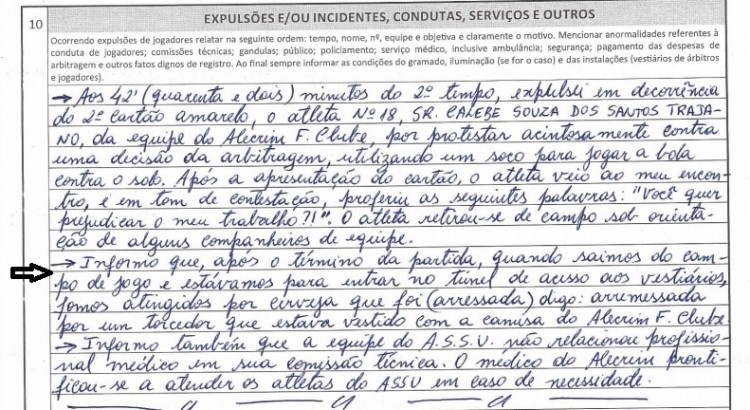 10
EXPULSÕES E/OU INCIDENTES, CONDUTAS, SERVIÇOS E OUTROS
Ocorrendo expulsões de jogadores relatar na seguinte ordem: tempo, nome, nº, equipe e objetiva e claramente o motivo. Mencionar anormalidades referentes à
conduta de jogadores; comissões técnicas; gandulas; público; policiamento; serviço médico, inclusive ambulância; segurança; pagamento das despesas de
arbitragem e outros fatos dignos de registro. Ao final sempre informar as condições do gramado, iluminação (se for o caso) e das instalações (vestiários de árbitros
e jogadores).
→ Aos 42' (quarenta e dois) minutos do 2º tempo, expulsei em decorrência
do 2º cartão amarelo, o atleta Nº 18, SR. CALEBE SOUZA DOS SANTOS TRAJA-
NO, da equipe do Alecrim F. Clube, por protestar acintosamente contra
uma decisão da arbitragem, utilizando um soco para jogar a bola
contra o solo. Após a apresentação do cartão, o atleta veio ao meu encon-
tro, e em tom de contestação, proferiu as seguintes palavras: "Você quer
prejudicar o meu trabalho?!". O atleta retirou-se de campo sob orienta-
ção de alguns companheiros de equipe.
→ Informo que, após o término da partida, quando saimos do cam-
po de jogo e estávamos para entrar no túnel de acesso aos vestiários,
fomos atingidos por cerveja que foi (arressada) digo: arremessada
por um torcedor que estava vestido com a camisa do Alecrim F. Clube
→ Informo também que a equipe do A.S.S.U. não relacionou profissio-
nal médico em sua comissão técnica. O médico do Alecrim pronti-
ficou-se a atender os atletas do ASSU em caso de necessidade.